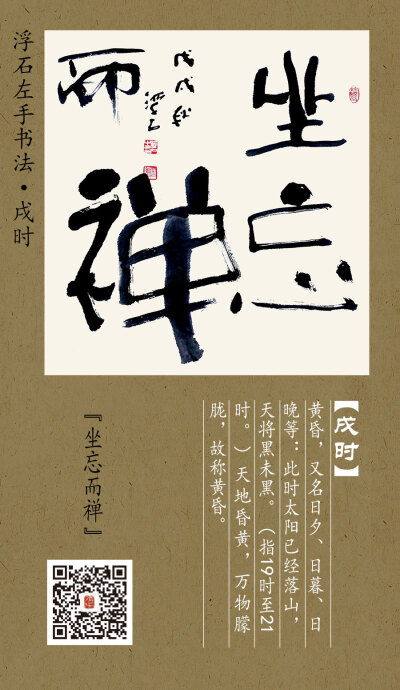 浮石左手书法·戌时
坐忘
而禅
【戌时】
黄昏，又名日夕、日暮、日
晚等：此时太阳已经落山，
天将黑未黑。（指19时至21
时。）天地昏黄，万物朦
胧，故称黄昏。
『坐忘而禅』